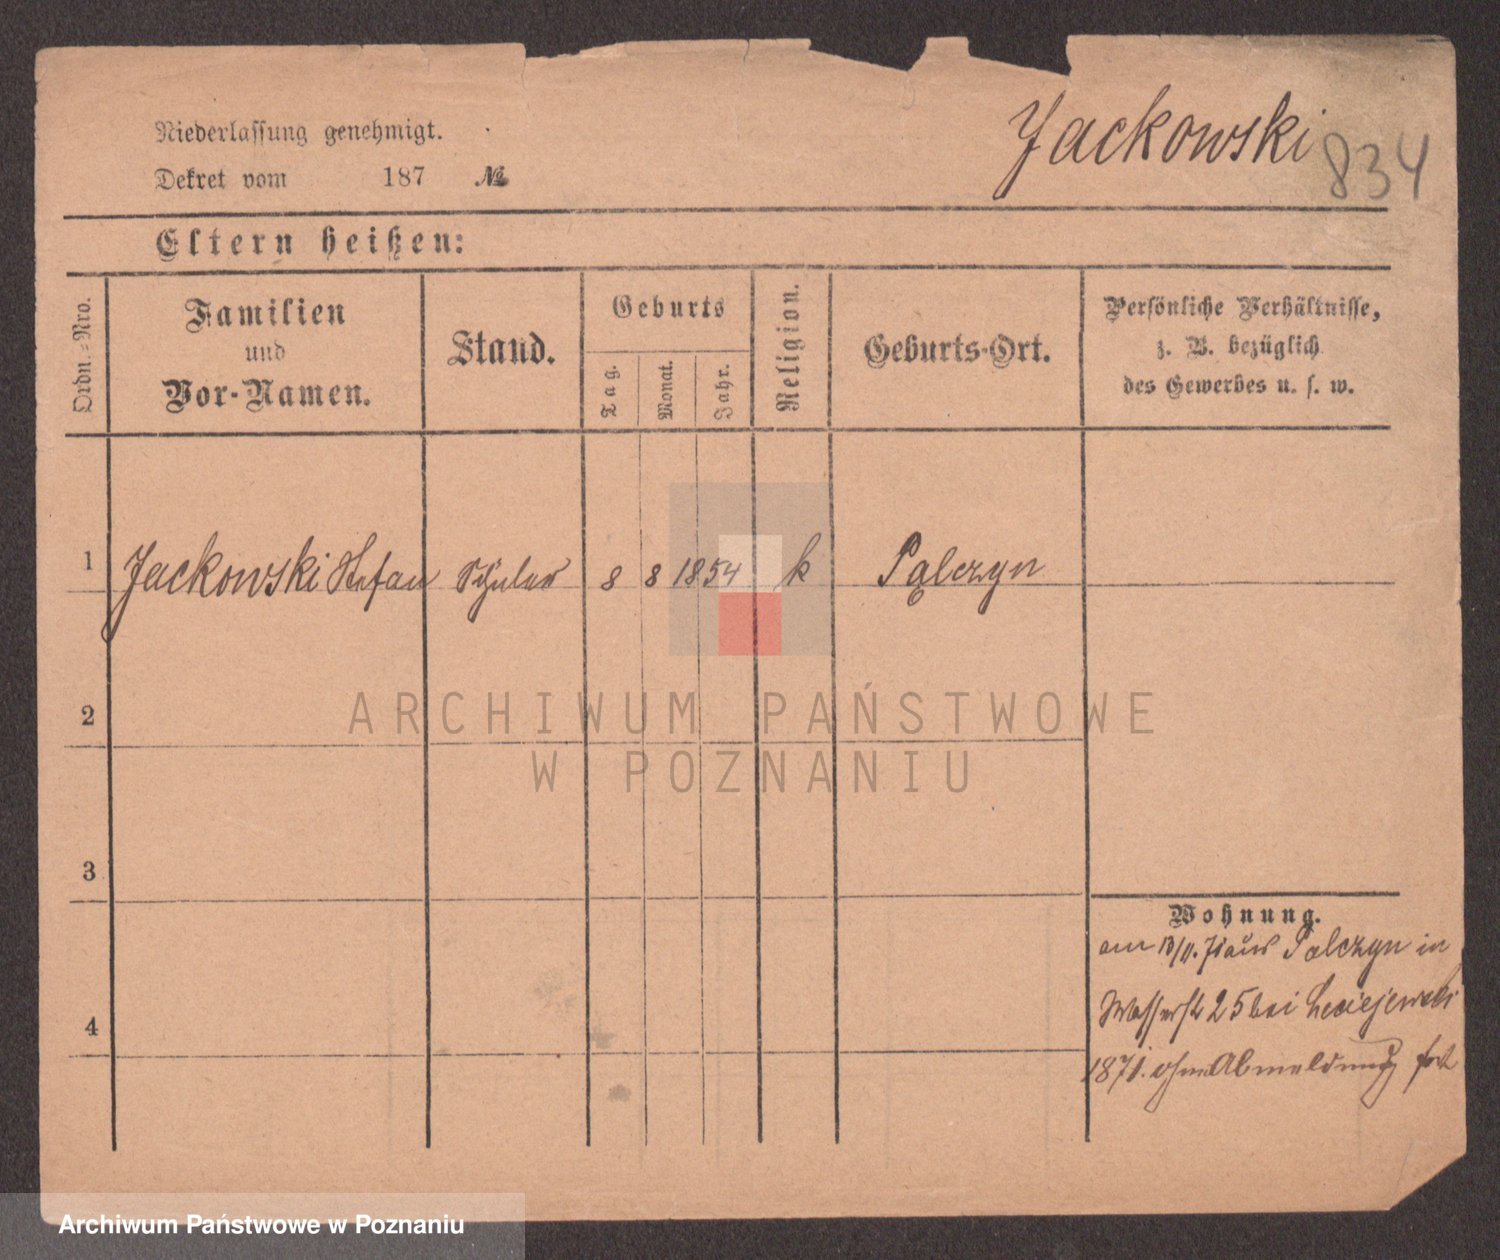 Niederlassung genehmigt.
Jackowski
834
Dekret vom 187 №
Eltern heißen:
Ordn.-Nro.
Familien
und
Vor-Namen.
Stand.
Geburts
Tag.
Monat.
Jahr.
Religion.
Geburts-Ort.
Persönliche Verhältnisse,
z. B. bezüglich
des Gewerbes u. s. w.
1 Jackowski Stefan Schüler 8 8 1854 k Pąlczyn
2
3
4
Wohnung.
am 13/11. 71 aus Palczyn in
Wasserst 25 bei
1871. ohne Abmeldung fort
ARCHIWUM PAŃSTWOWE
W POZNANIU
Archiwum Państwowe w Poznaniu